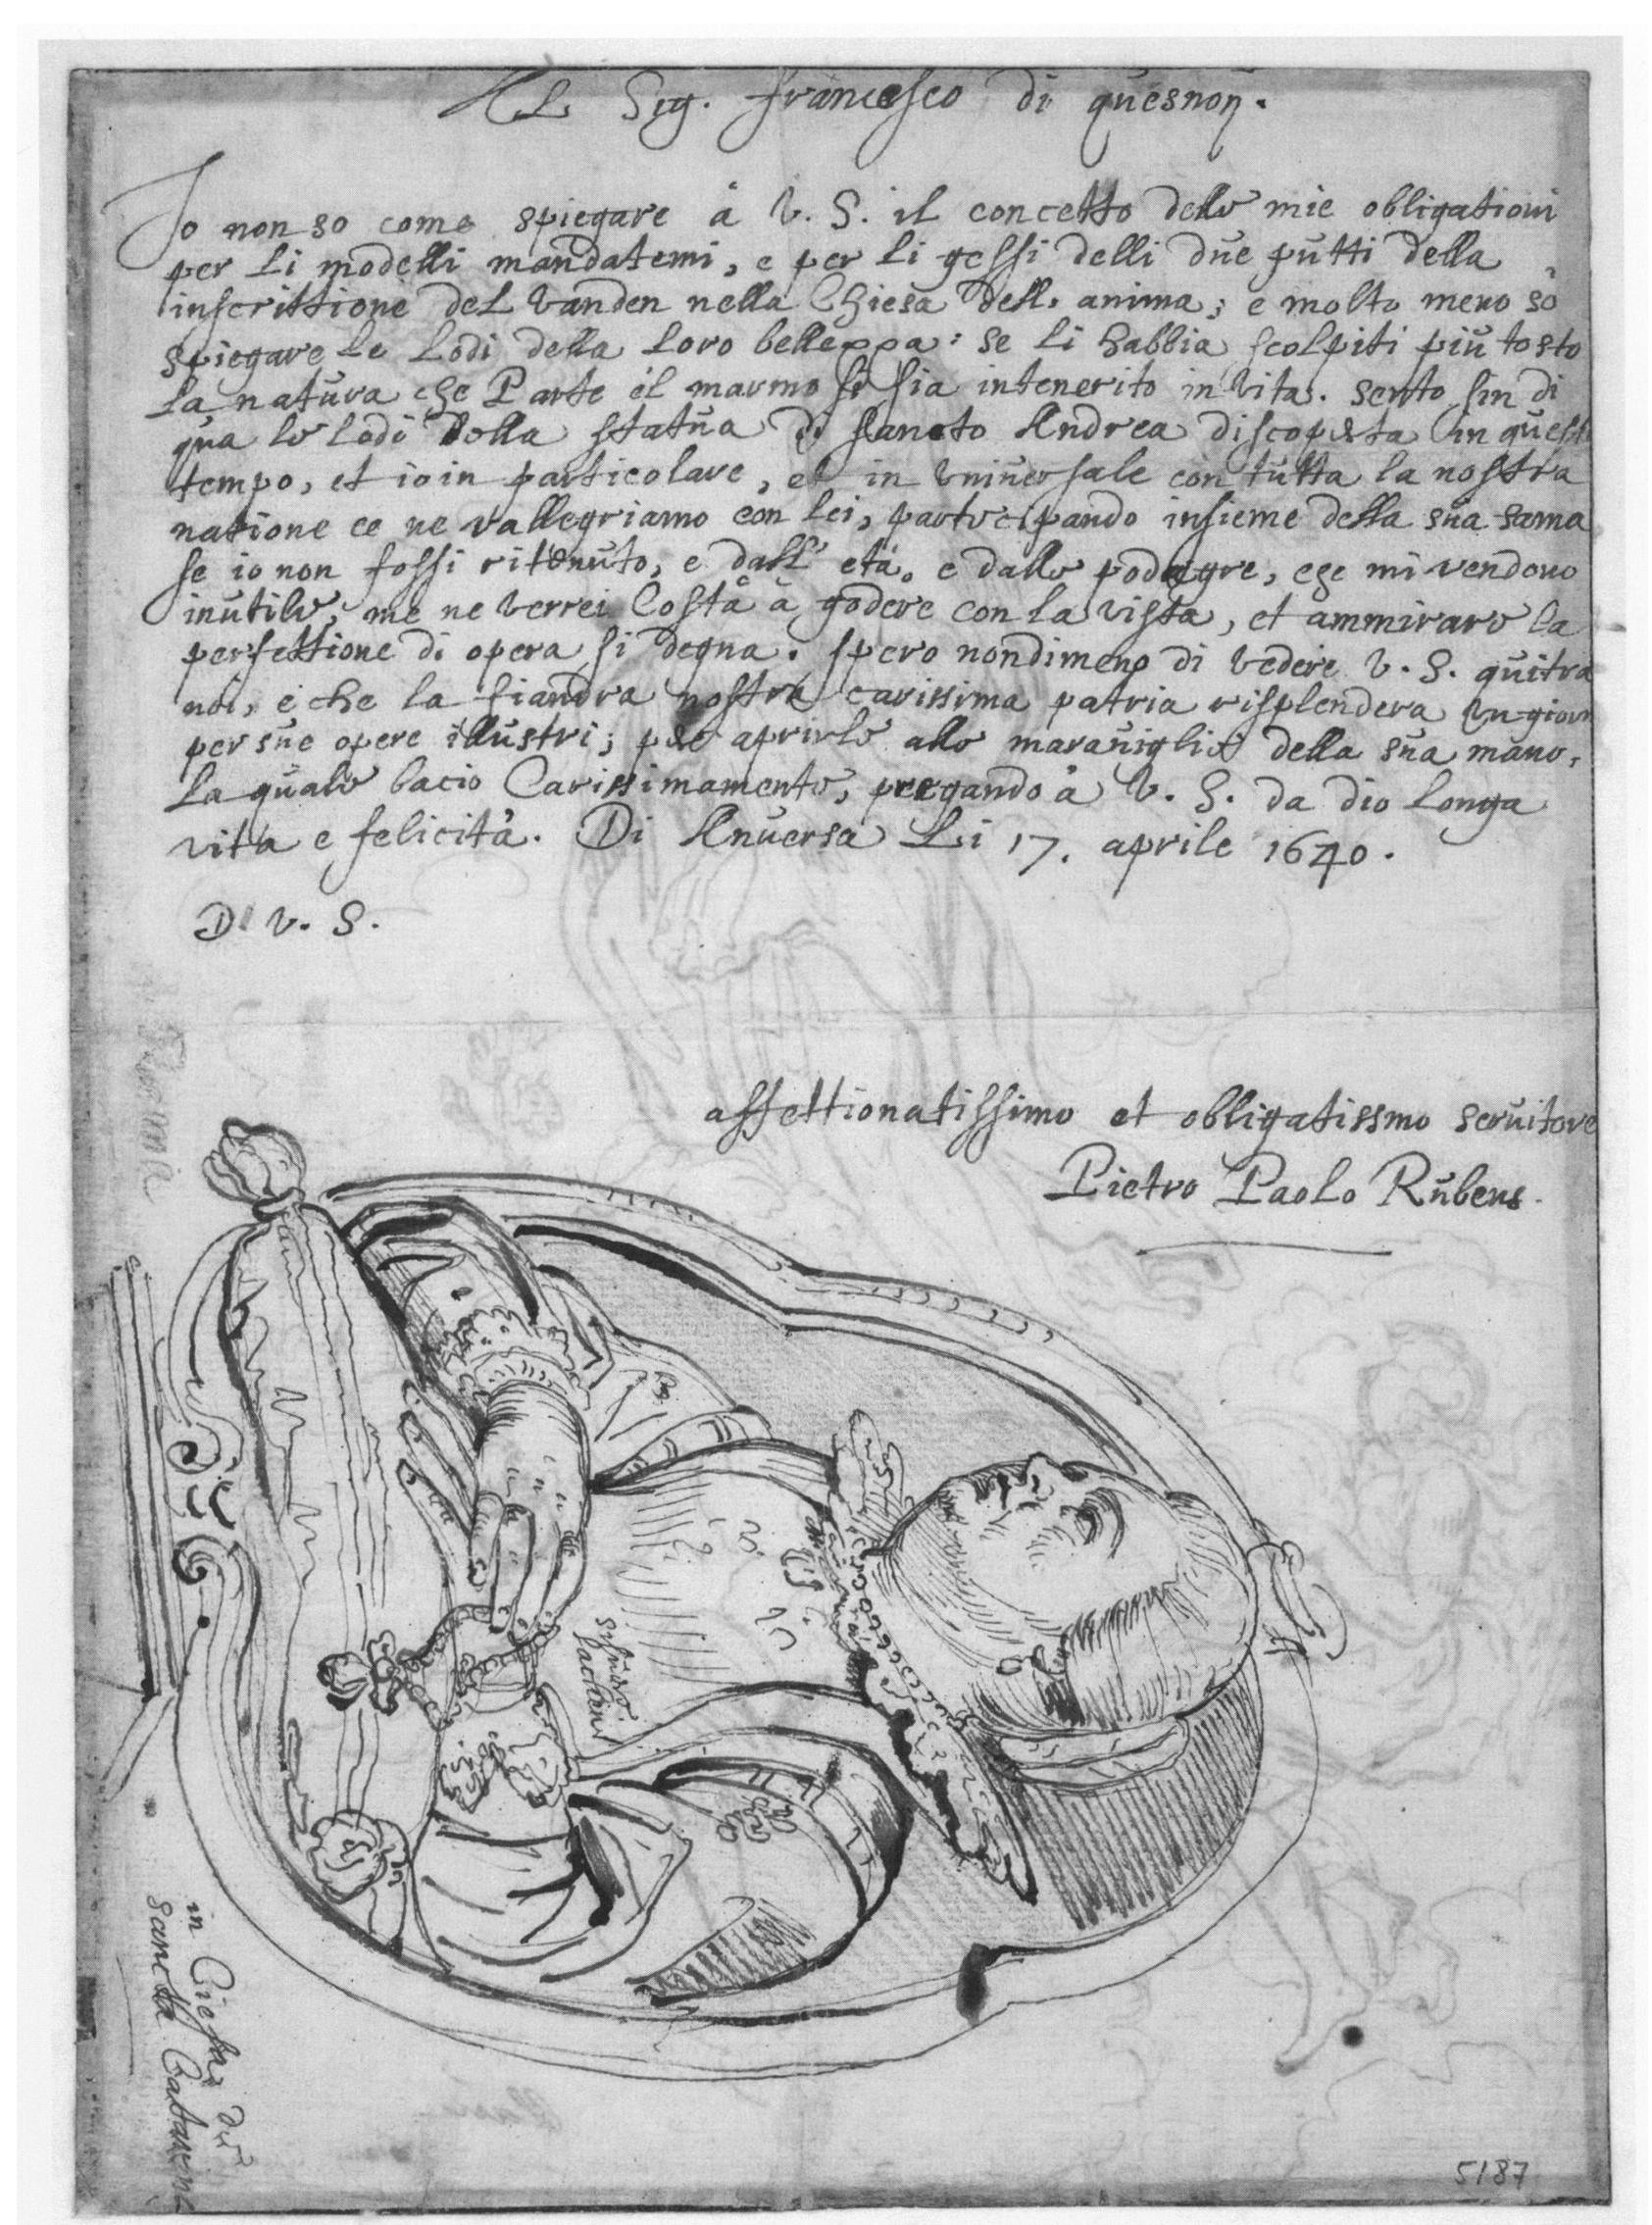 AL Sig. francesco di quesnoÿ.
Io non so come spiegare à V. S. il concetto delle mie obligationi
per li modelli mandatemi, e per li gessi delli due putti della
inscrittione del Vanden nella Chiesa dell. anima; e molto meno so
spiegare le lodi della loro bellezza: se li habbia scolpiti più tosto
la natura che l'arte è il marmo si sia intenerito in Vita. sento sin di
qua le lodi della statua di sancto Andrea discoperta in questo
tempo, et io in particolare, et in Vniversale con tutta la nostra
natione ce ne rallegriamo con lei, partecipando insieme della sua fama
se io non fossi ritenuto, e dall' età, e dalle podagre, che mi rendono
inutile, me ne verrei Costà à godere con la vista, et ammirare la
perfettione di opera si degna. spero nondimeno di vedere V. S. qui tra
noi, e che la fiandra nostra carissima patria risplendera un giorn
per sue opere illustri; aprirle alle maraviglie della sua mano,
la quale bacio Carissimamente, pregando à V. S. da dio longa
vita e felicità. Di Anversa Li 17. aprile 1640.
D. V. S.
affettionatissimo et obligatissmo servitore
Pietro Paolo Rubens.
in Ciesa de
sancta Catarina
5187